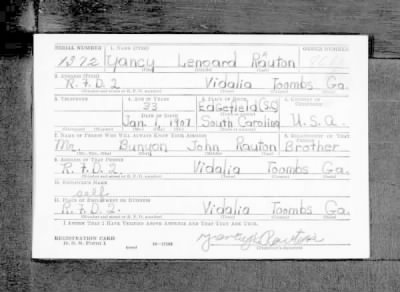 SERIAL NUMBER 1. NAME (Print) ORDER NUMBER
1372 Yancy Lenoard Rauton
(First) (Middle) (Last)
2. ADDRESS (Print)
R.F.D.2 Vidalia Toombs Ga.
(Number and street or R. F. D. number) (Town) (County) (State)
3. TELEPHONE 4. AGE IN YEARS 5. PLACE OF BIRTH 6. COUNTRY OF CITIZENSHIP
33 Edgefield (S.C)
DATE OF BIRTH
Jan. 1, 1907 South Carolina U.S.A.
7. NAME OF PERSON WHO WILL ALWAYS KNOW YOUR ADDRESS 8. RELATIONSHIP OF THAT PERSON
Mr. Bunyon John Rauton Brother
(Mr., Mrs., Miss) (First) (Middle) (Last)
9. ADDRESS OF THAT PERSON
R.F.D.2 Vidalia Toombs Ga.
(Number and street or R. F. D. number) (Town) (County) (State)
10. EMPLOYER'S NAME
self
11. PLACE OF EMPLOYMENT OR BUSINESS
R.F.D.2. Vidalia Toombs Ga.
(Number and street or R. F. D. number) (Town) (County) (State)
I AFFIRM THAT I HAVE VERIFIED ABOVE ANSWERS AND THAT THEY ARE TRUE.
REGISTRATION CARD
D. S. S. Form 1 (over) Rauton
(Registrant's signature)